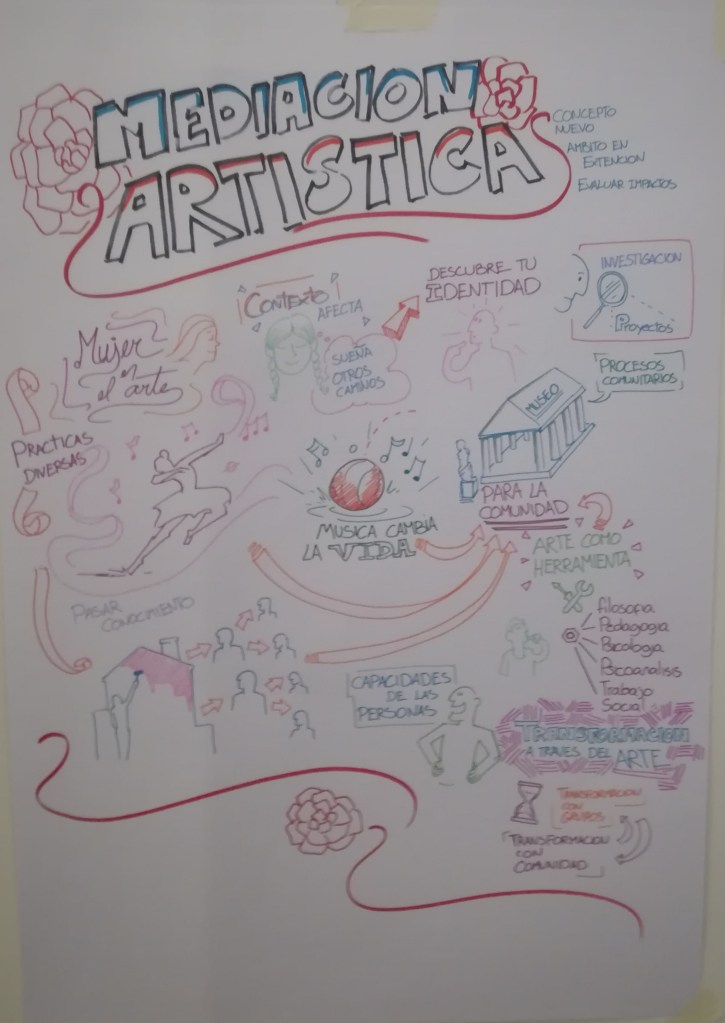 MEDIACION
ARTISTICA
CONCEPTO
NUEVO
AMBITO EN
EXTENCION
EVALUAR IMPACTOS
Mujer
en
el arte
CONTEXTO
AFECTA
SUEÑA
OTROS
CAMINOS
DESCUBRE TU
IDENTIDAD
INVESTIGACION
Proyectos
PROCESOS
COMUNITARIOS
MUSEO
PRACTICAS
DIVERSAS
MUSICA CAMBIA
LA VIDA
PARA LA
COMUNIDAD
ARTE COMO
HERRAMIENTA
Filosofia
Pedagogia
Psicologia
Psicoanalisis
Trabajo
Social
PASAR
CONOCIMIENTO
CAPACIDADES
DE LAS
PERSONAS
TRANSFORMACION
A TRAVES DEL ARTE
TRANSFORMACION
CON
GRUPOS
TRANSFORMACION
CON
COMUNIDAD